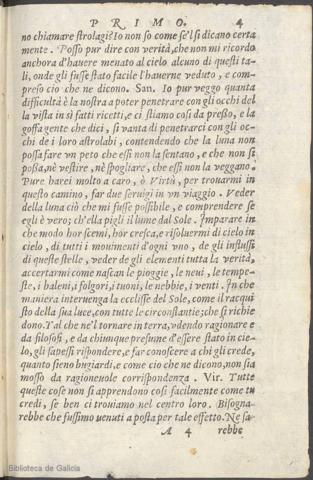 PRIMO. 4
no chiamare strolagi? Io non so come se'l si dicano certa
mente. Posso pur dire con verità, che non mi ricordo
anchora d'hauere menato al cielo alcuno di questi ta-
li, onde gli fusse stato facile l'hauerne veduto, e com-
preso cio che ne dicono. San. Io pur veggo quanta
difficultà è la nostra a poter penetrare con gli occhi del
la vista in sì fatti ricetti, e ci stiamo cosi da presso, e la
goffa gente che dici, si vanta di penetrarci con gli oc-
chi de i loro astrolabi, contendendo che la luna non
possa fare vn peto che essi non la sentano, e che non si
possa, nè vestire, nè spogliare, che essi non la veggano.
Pure harei molto a caro, ò Virtù, per trouarmi in
questo camino, far due seruigi in vn viaggio. Veder
della luna ciò che mi fusse possibile, e comprendere se
egli è vero; ch'ella pigli il lume dal Sole. Imparare in
che modo hor scemi, hor cresca, e risoluermi di cielo in
cielo, di tutti i mouimenti d'ogni vno, de gli influssi
di queste stelle, veder de gli elementi tutta la verità,
accertarmi come nascan le pioggie, le neui, le tempe-
ste, i baleni, i folgori, i tuoni, le nebbie, i venti. In che
maniera interuenga la ecclisse del Sole, come il racqui
sto della sua luce, con tutte le circonstantie; che si richie
dono. Tal che ne'l tornare in terra, vdendo ragionare e
da filosofi, e da chiunque presume d'essere stato in cie-
lo, gli sapessi rispondere, e far conoscere a chi gli crede,
quanto sieno bugiardi, e come cio che ne dicono, non sia
mosso da ragioneuole corrispondenza. Vir. Tutte
queste cose non si apprendono cosi facilmente come tu
credi, se ben ci trouiamo nel centro loro. Bisogna-
rebbe che fussimo uenuti a posta per tale effetto. Ne sa-
A 4 rebbe
Biblioteca de Galicia